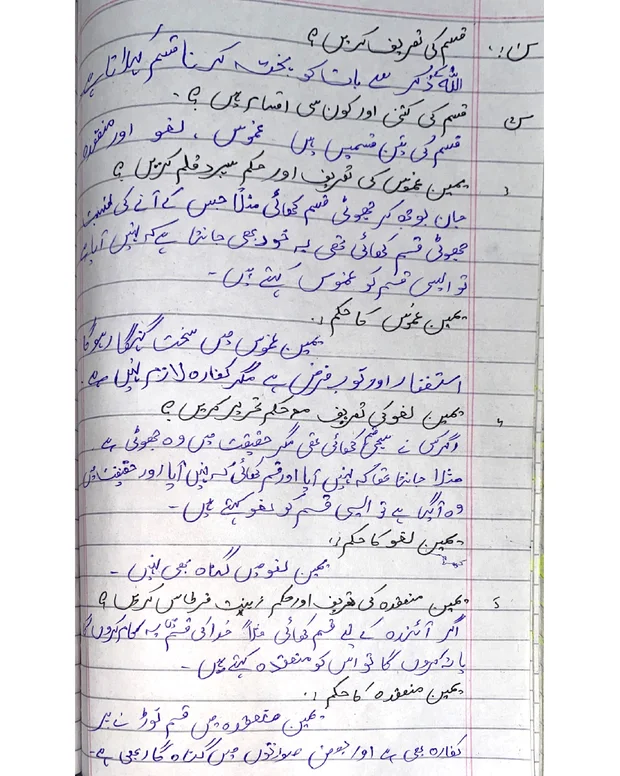 س۱:۔ قسم کی تعریف کریں؟
اللہ کے ذکر سے بات کو پختہ کرنا قسم کہلاتا ہے
س۲ قسم کی کتنی اور کون سی اقسام ہیں؟۔
قسم کی تین قسمیں ہیں غموس ، لغو اور منعقدہ
۳ یمین غموس کی تعریف اور حکم سپرد قلم کریں؟
جان بوجھ کر جھوٹی قسم کھائی مثلاً جس کے آنے کی نسبت
جھوٹی قسم کھائی تھی یہ خود بھی جانتا ہے کہ نہیں آیا ہے
تو ایسی قسم کو غموس کہتے ہیں۔
یمین غموس کا حکم :۔
یمین غموس میں سخت گنہگار ہوگا
استغفار اور توبہ فرض ہے مگر کفارہ لازم نہیں ہے۔
۴ یمین لغو کی تعریف مع حکم تحریر کریں؟
اگر کسی نے سچی قسم کھائی تھی مگر حقیقت میں وہ جھوٹی ہے
مثلاً جانتا تھا کہ نہیں آیا اور قسم کھائی کہ نہیں آیا اور حقیقت میں
وہ آگیا ہے تو ایسی قسم کو لغو کہتے ہیں۔
یمین لغو کا حکم :۔
یمین لغو میں گناہ بھی نہیں۔
۵ یمین منعقدہ کی تعریف اور حکم زینت قرطاس کریں؟
اگر آئندہ کے لیے قسم کھائی مثلاً خدا کی قسم یہ کام کروں گا
یا نہ کروں گا تو اس کو منعقدہ کہتے ہیں۔
یمین منعقدہ کا حکم :۔
یمین منعقدہ میں قسم توڑنے پر
کفارہ بھی ہے اور بعض صورتوں میں گناہ گار بھی ہے۔